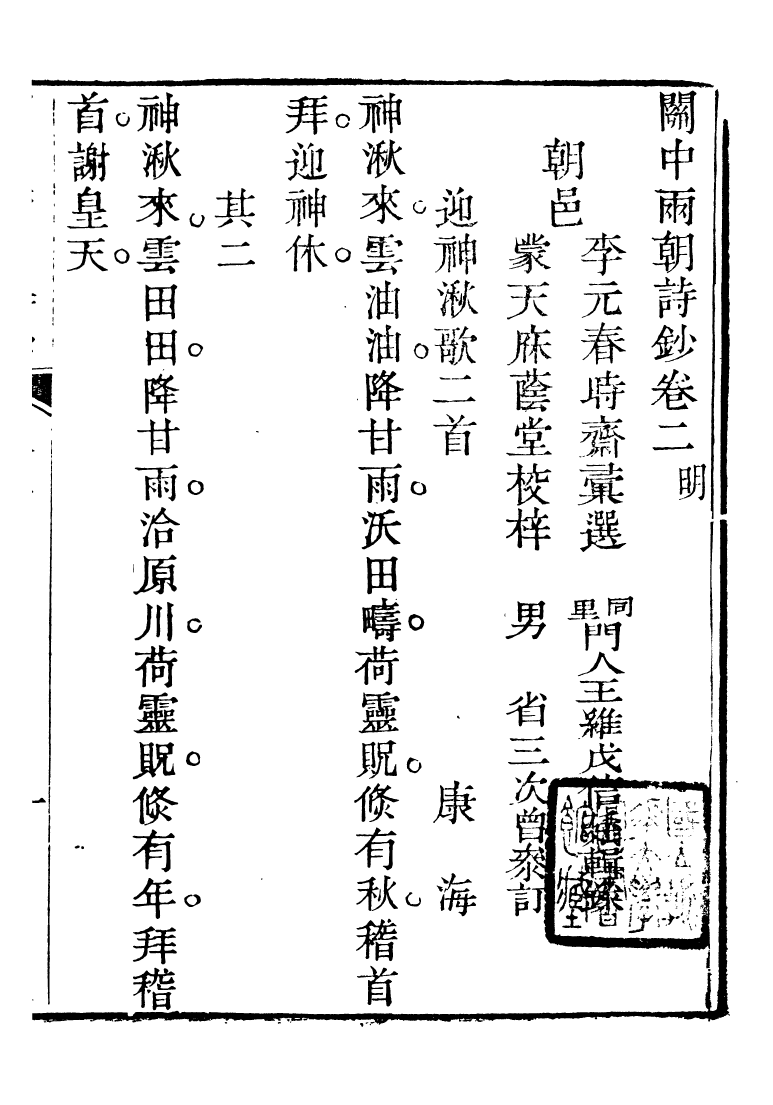 關中兩朝詩鈔卷二 明
朝邑
李元春時齋彙選 同里門人王維戊信
蒙天庥蔭堂校梓 男 省三次曾叅訂
迎神湫歌二首 康海
神湫來。雲油油。降甘雨。沃田疇。荷靈貺。倐有秋。稽首
拜。迎神休。
其二
神湫來。雲田田。降甘雨。洽原川。荷靈貺。倐有年。拜稽
首。謝皇天。
一